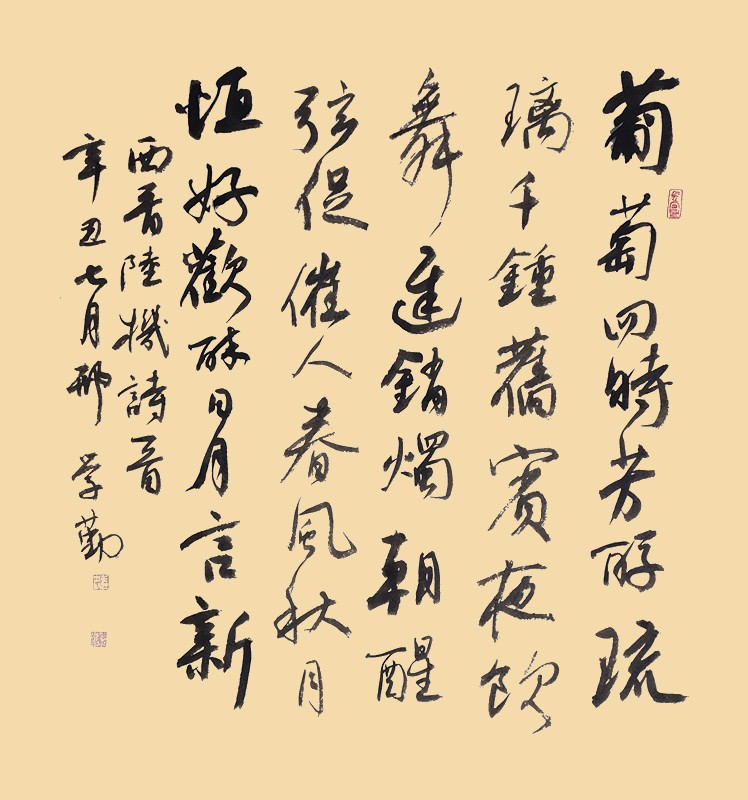 葡萄四時芳醇琉
璃千鍾舊賓夜飲
舞遲銷燭朝醒
弦促催人春風秋月
恒好歡醉日月言新
西晋陸機詩一首
辛丑七月邢学勤